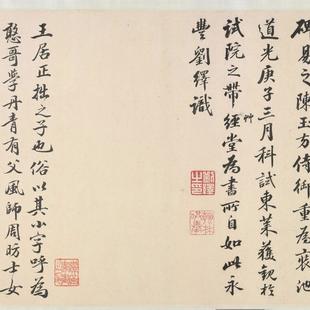 碑易之陳玉方侍御重屋裝池
道光庚子三月科試東萊獲觀於
試院之帶經堂為書所自如此永
艸
豐劉繹識
王居正拙之子也俗以其小字呼為
憨哥學丹青有父風師周昉士女